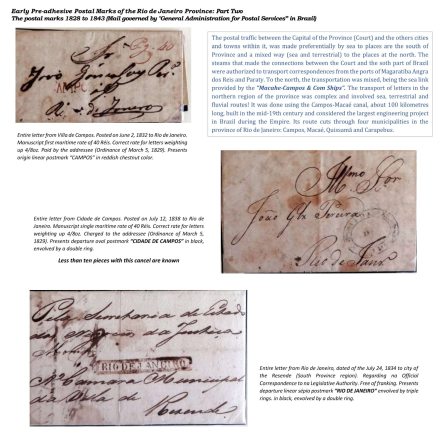 Early Pre-adhesive Postal Marks of the Rio de Janeiro Province: Part Two
The postal marks 1828 to 1843 (Mail governed by "General Administration for Postal Services" in Brazil)
The postal traffic between the Capital of the Province (Court) and the others cities
and towns within it, was made preferentially by sea to places are the south of
Province and a mixed way (sea and terrestrial) to the places at the north. The
steams that made the connections between the Court and the soth part of Brazil
were authorized to transport correspondences from the ports of Magaratiba Angra
dos Reis and Paraty. To the north, the transportation was mixed, being the sea link
provided by the "Macahe-Campos & Com Ships". The transport of letters in the
northern region of the province was complex and involved sea, terrestrial and
fluvial routes! It was done using the Campos-Macaé canal, about 100 kilometres
long, built in the mid-19th century and considered the largest engineering project
in Brazil during the Empire. Its route cuts through four municipalities in the
province of Rio de Janeiro: Campos, Macaé, Quissamã and Carapebus.
Entire letter from Villa de Campos. Posted on June 2, 1832 to Rio de Janeiro.
Manuscript first maritime rate of 40 Réis. Correct rate for letters weighting
up 4/8oz. Paid by the addressee (Ordinance of March 5, 1829). Presents
origin linear postmark "CAMPOS" in reddish chestnut color.
Entire letter from Cidade de Campos. Posted on July 12, 1838 to Rio de
Janeiro. Manuscript single maritime rate of 40 Réis. Correct rate for letters
weighting up 4/8oz. Charged to the addressee (Ordinance of March 5,
1829). Presents departure oval postmark "CIDADE DE CAMPOS" in black,
envolved by a double ring.
Less than ten pieces with this cancel are known
RIO DE JANEIRO
Resende
Entire letter from Rio de Janeiro, dated of the July 24, 1834 to city of
the Resende (South Province region). Regarding na Official
Correspondence to na Legislative Authority. Free of franking. Presents
departure linear sépia postmark "RIO DE JANEIRO" envolved by triple
rings. in black, envolved by a double ring.